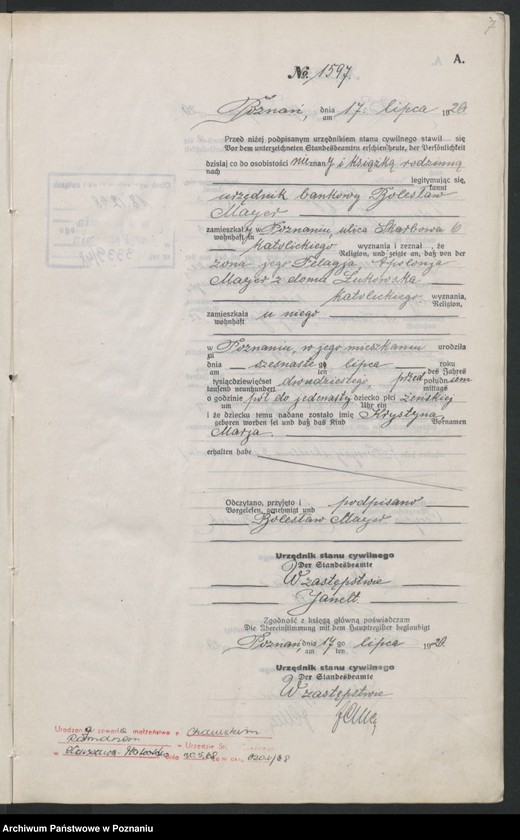 7
A.
No. 1597.
Poznań, dnia 17 lipca 1920
am
Przed niżej podpisanym urzędnikiem stanu cywilnego stawił się
Vor dem unterzeichneten Standesbeamten erschien heute, der Persönlichkeit
dzisiaj co do osobistości nieznany i książką rodzinną
nach
legitymując się,
kannt
urzędnik bankowy Bolesław
Mayer
zamieszkały w Poznaniu, ulica Skarbowa 6
wohnhaft in
katolickiego wyznania i zeznał, że
Religion, und zeigte an, daß von der
żona jego Pelagja Apolonja
Mayer z domu Łukowska
katolickiego wyznania,
Religion,
zamieszkała u niego
wohnhaft
w Poznaniu, w jego mieszkaniu urodziła
zu
dnia szesnastego lipca roku
am ten des Jahres
tysiącdziewięćset dwudziestego, przed południem
tausend neunhundert mittags
o godzinie pół do jedenastej dziecko płci żeńskiej
um Uhr ein
i że dziecku temu nadane zostało imię Krystyna
geboren worden sei und daß das Kind Vornamen
Marja.
erhalten habe
Odczytano, przyjęto i podpisano
Vorgelesen, genehmigt und
Bolesław Mayer
Urzędnik stanu cywilnego
Der Standesbeamte
W zastępstwie
Janelt.
Zgodność z księgą główną poświadczam
Die Übereinstimmung mit dem Hauptregister beglaubigt
Poznań, dnia 17 go lipca 1920.
am ten
Urzędnik stanu cywilnego
Der Standesbeamte
W zastępstwie
Urodzona zawarła małżeństwo z
w Urzędzie St.
w Warszawa dnia 30.5.68
Archiwum Państwowe w Poznaniu